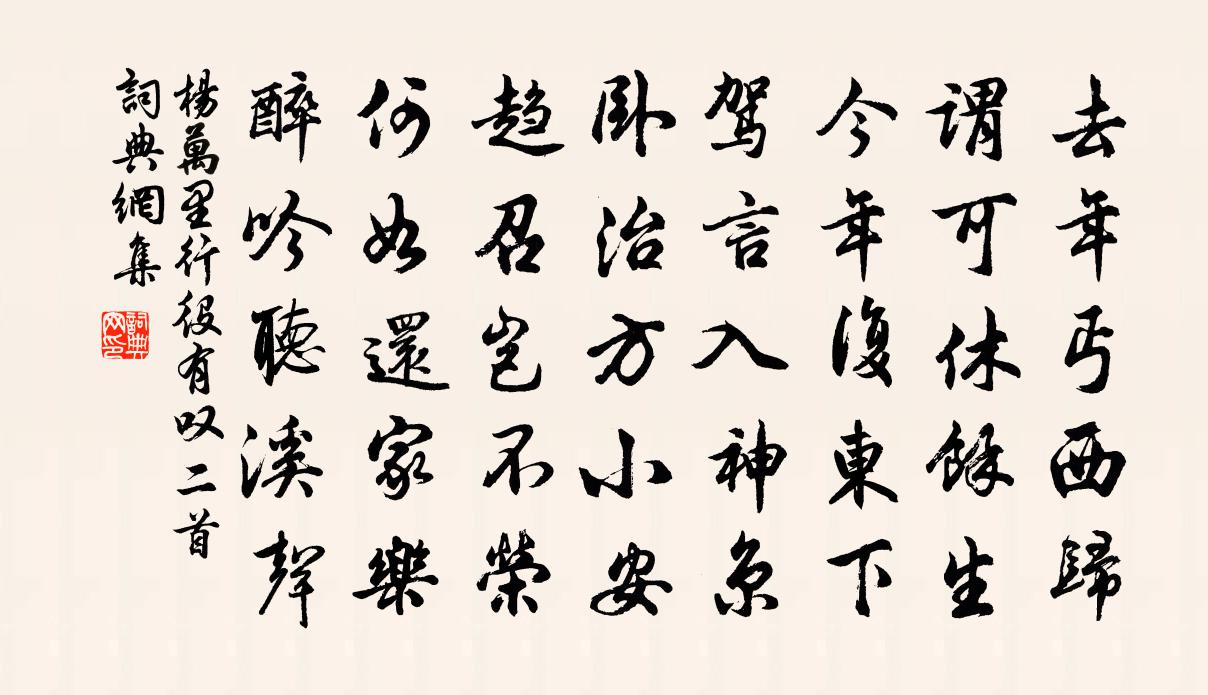 去年丐西歸
謂可休餘生
今年復東下
駕言入神京
臥治方小安
趨召豈不榮
何如還家樂
醉吟聽溪聲
楊萬里行役有叹二首
詞典網集
詞典网印